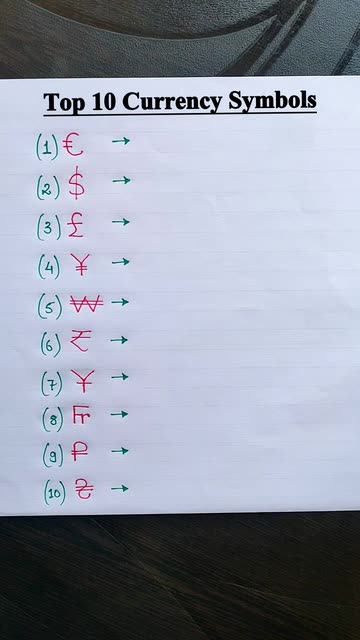 Top 10 Currency Symbols
(1) € →
(2) $ →
(3) £ →
(4) ¥ →
(5) ₩ →
(6) ₹ →
(7) ¥ →
(8) ₣ →
(9) ₽ →
(10) ₴ →